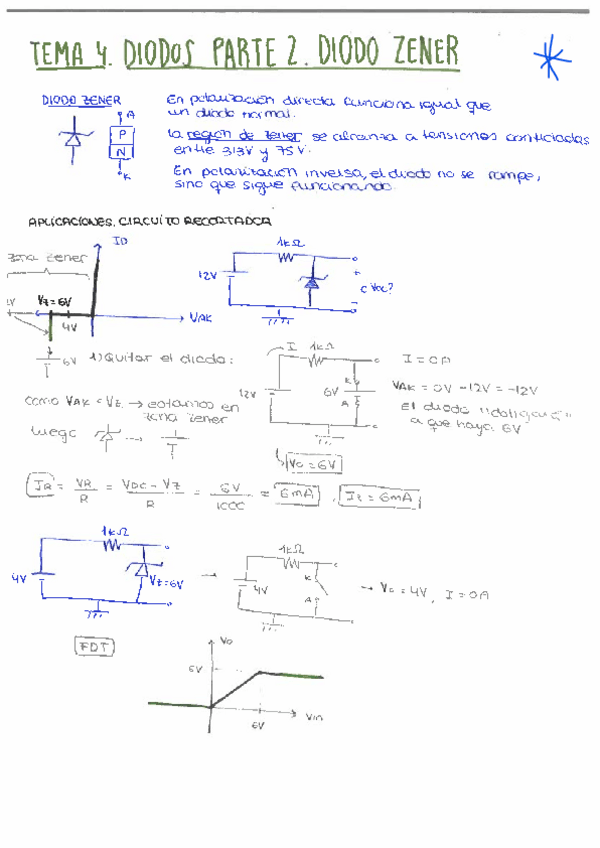 TEMA 4. DIODOS PARTE 2. DIODO ZENER
DIODO ZENER
En polarización directa funciona igual que
un diodo normal.
La región de zener se alcanza a tensiones conficiadas
entre 3'3V y 75V.
En polarización inversa, el diodo no se rompe,
sino que sigue funcionando.
A
P
N
K
APLICACIONES. CIRCUITO RECORTADOR
ID
zona zener
Vz=6V
4V
VAK
1kΩ
12V
+
-
¿Voc?
6V
1) Quitar el diodo:
I 1kΩ
12V
6V
K
A
I = 0A
VAK = 0V - 12V = -12V
El diodo "obligará"
a que haya 6V
como VAK < Vz → estamos en
zona zener
luego
Vo = 6V
IR = VR/R = VDC - Vz/R = 6V/1000 = 6mA, Iz = 6mA
1kΩ
4V
Vz=6V
→
1kΩ
4V
K
A
→ Vo = 4V, I = 0A
FDT
Vo
6V
6V
Vin